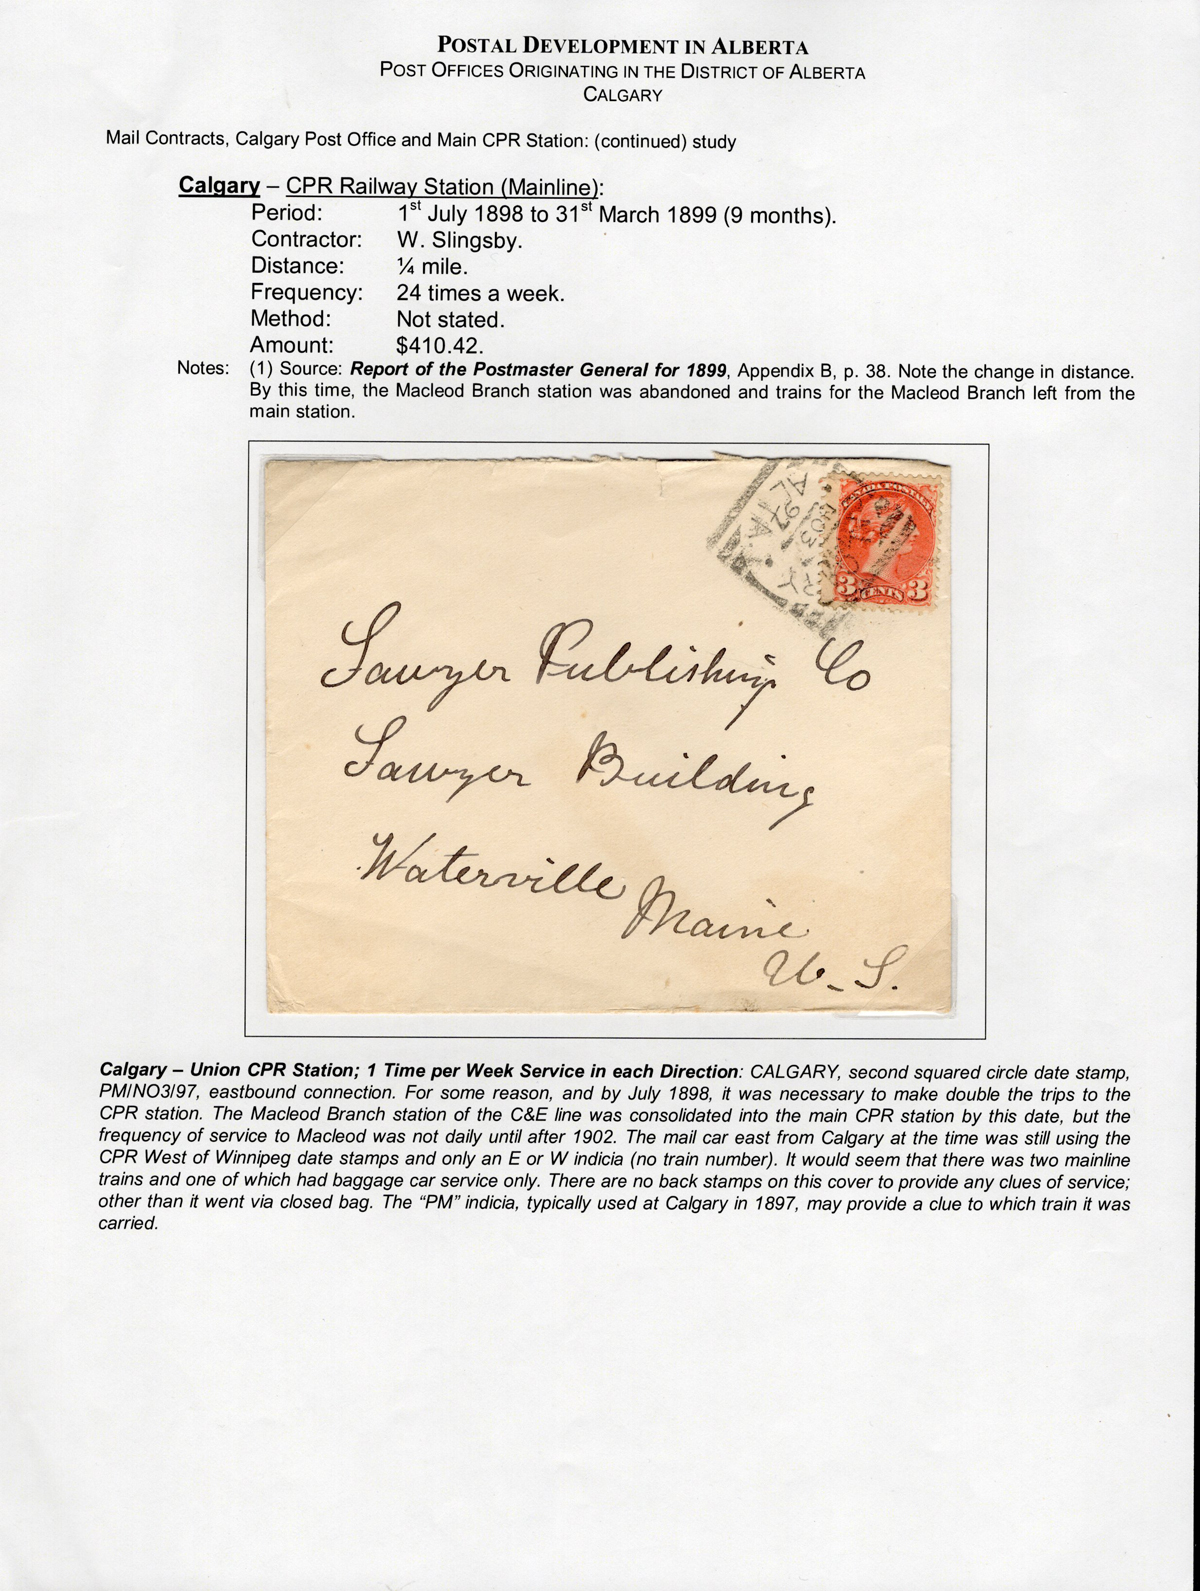 POSTAL DEVELOPMENT IN ALBERTA
POST OFFICES ORIGINATING IN THE DISTRICT OF ALBERTA
CALGARY
Mail Contracts, Calgary Post Office and Main CPR Station: (continued) study
Calgary – CPR Railway Station (Mainline):
Period: 1st July 1898 to 31st March 1899 (9 months).
Contractor: W. Slingsby.
Distance: ¼ mile.
Frequency: 24 times a week.
Method: Not stated.
Amount: $410.42.
Notes: (1) Source: Report of the Postmaster General for 1899, Appendix B, p. 38. Note the change in distance.
By this time, the Macleod Branch station was abandoned and trains for the Macleod Branch left from the
main station.
CANADA POSTAGE
3 CENTS 3
ALTA
97
NO3
RY
Sawyer Publishing Co
Sawyer Building
Waterville
Maine
U. S.
Calgary – Union CPR Station; 1 Time per Week Service in each Direction: CALGARY, second squared circle date stamp,
PM/NO3/97, eastbound connection. For some reason, and by July 1898, it was necessary to make double the trips to the
CPR station. The Macleod Branch station of the C&E line was consolidated into the main CPR station by this date, but the
frequency of service to Macleod was not daily until after 1902. The mail car east from Calgary at the time was still using the
CPR West of Winnipeg date stamps and only an E or W indicia (no train number). It would seem that there was two mainline
trains and one of which had baggage car service only. There are no back stamps on this cover to provide any clues of service;
other than it went via closed bag. The “PM” indicia, typically used at Calgary in 1897, may provide a clue to which train it was
carried.